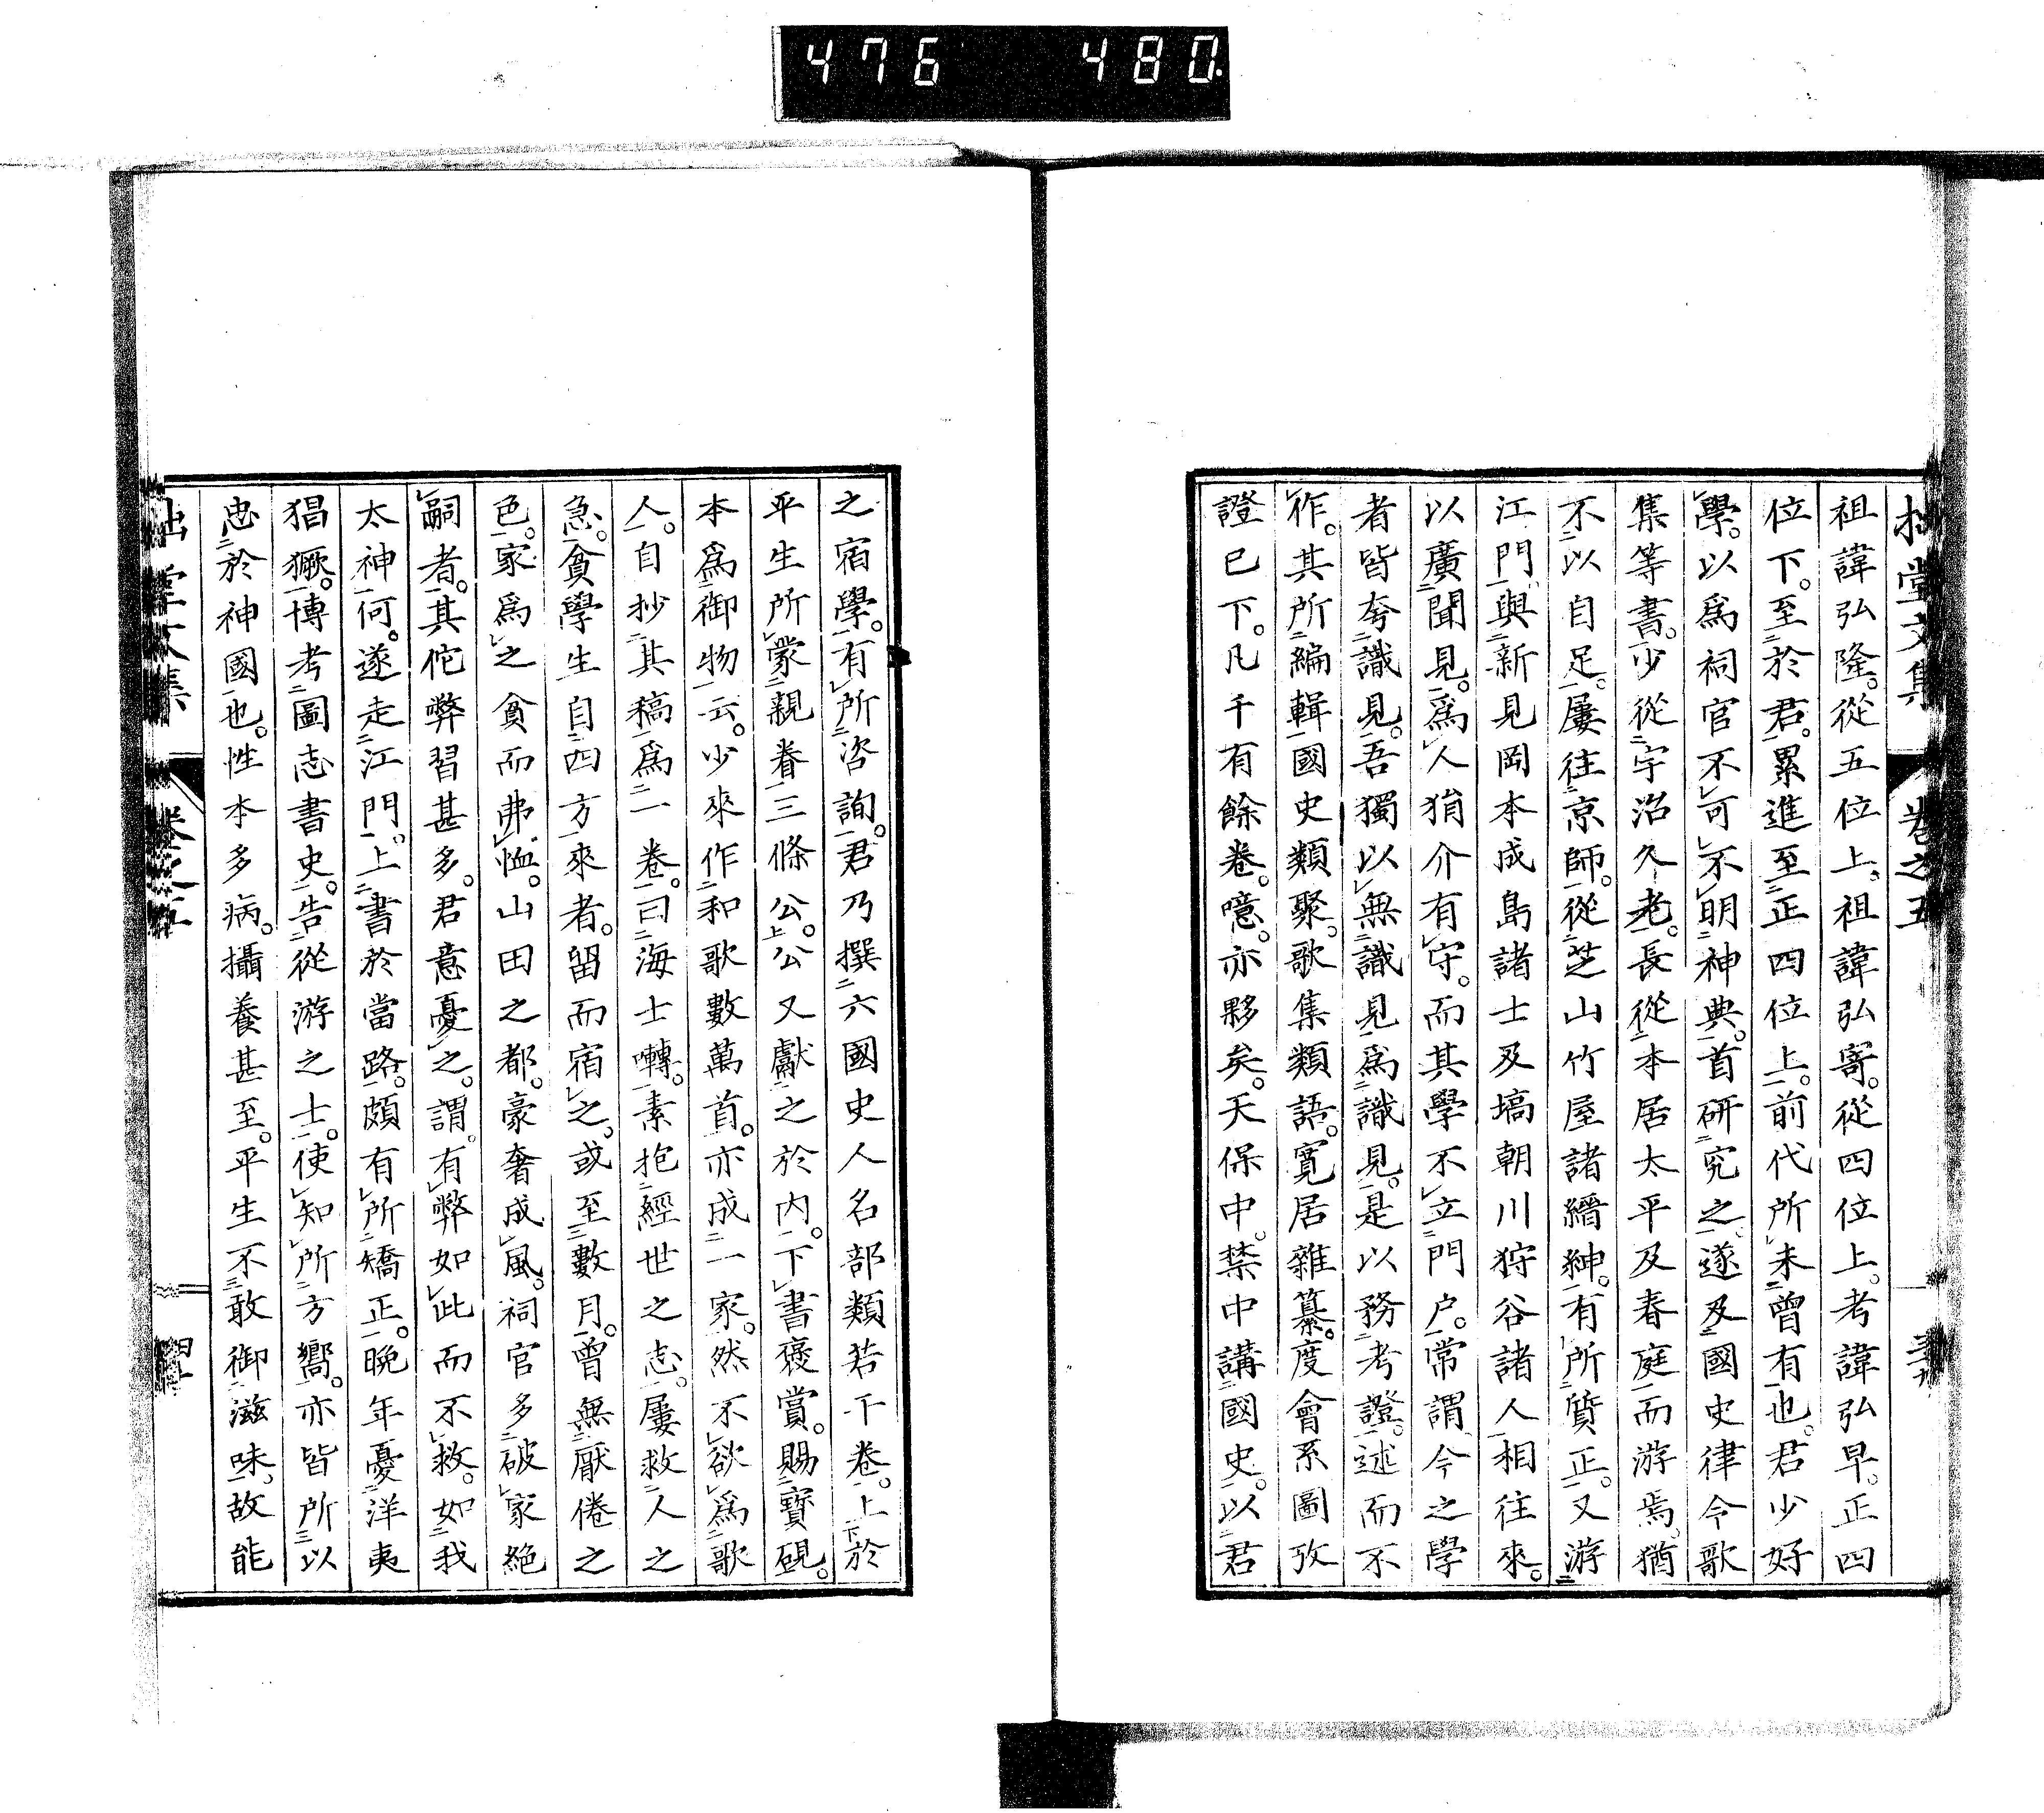 476 480
拙堂文集 卷之五
祖諱弘隆。從五位上。祖諱弘寄。從四位上。考諱弘早。正四
位下。至於君。累進至正四位上。前代所未曾有也。君少好
學。以爲祠官不可不明神典。首研究之。遂及國史律令歌
集等書。少從宇治久老。長從本居太平及春庭而游焉。猶
不以自足。屢往京師。從芝山竹屋諸縉紳。有所質正。又游
江門。與新見岡本成島諸士及塙朝川狩谷諸人相往來。
以廣聞見。爲人狷介有守。而其學不立門戶。常謂今之學
者皆夸識見。吾獨以無識見爲識見。是以務考證。述而不
作。其所編輯國史類聚。歌集類語。寬居雜纂。度會系圖攷
證已下。凡千有餘卷。噫。亦夥矣。天保中。禁中講國史。以君
之宿學。有所咨詢。君乃撰六國史人名部類若干卷。上於
平生所蒙親眷三條公。公又獻之於内。下書褒賞。賜寶硯。
本爲御物云。少來作和歌數萬首。亦成一家。然不欲爲歌
人。自抄其稿爲一卷。曰海士囀。素抱經世之志。屢救人之
急。貧學生自四方來者。留而宿之。或至數月。曾無厭倦之
色。家爲之貧而弗恤。山田之都。豪奢成風。祠官多破家絕
嗣者。其佗弊習甚多。君意憂之。謂有弊如此而不救。如我
太神何。遂走江門。上書於當路。頗有所矯正。晩年憂洋夷
猖獗。博考圖志書史。告從游之士。使知所方嚮。亦皆所以
忠於神國也。性本多病。攝養甚至。平生不敢御滋味。故能
拙堂文集 卷之五